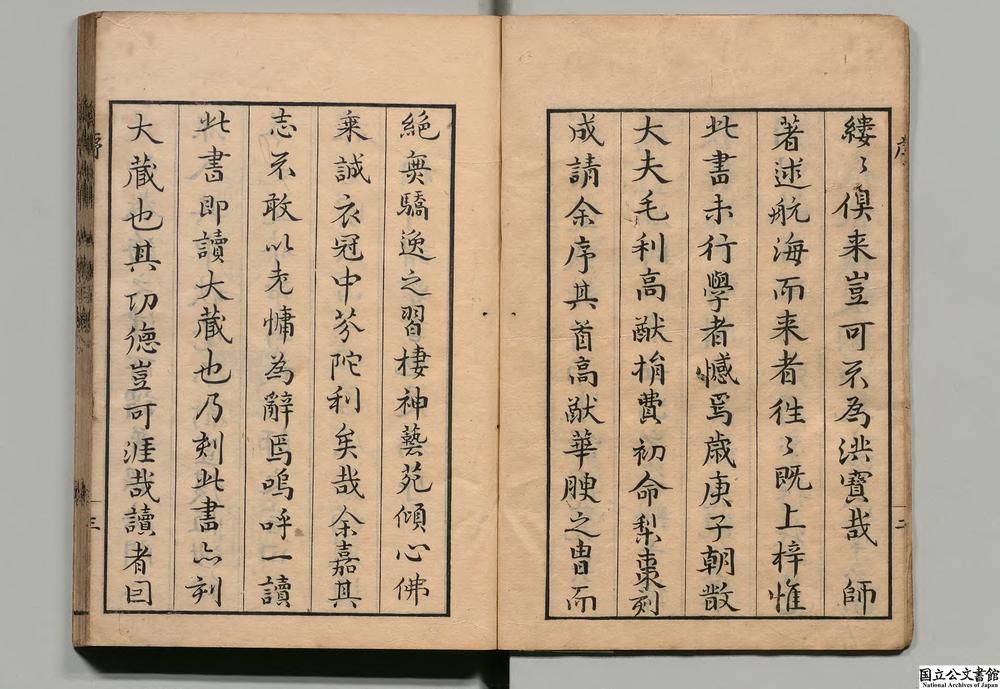 縷々俱来豈可不為洪寶哉　師
著述航海而来者徃々既上梓惟
此書未行學者憾焉歳庚子朝散
大夫毛利高猷捐費初命梨棗刻
成請余序其首高猷華腴之曹而
序
二
絶無驕逸之習棲神藝苑傾心佛
乗誠衣冠中芬陀利矣哉余嘉其
志不敢以老慵為辭焉嗚呼一讀
此書即讀大蔵也乃刻此書亦刻
大蔵也其功德豈可涯哉讀者回
序
三
国立公文書館
National Archives of Japan